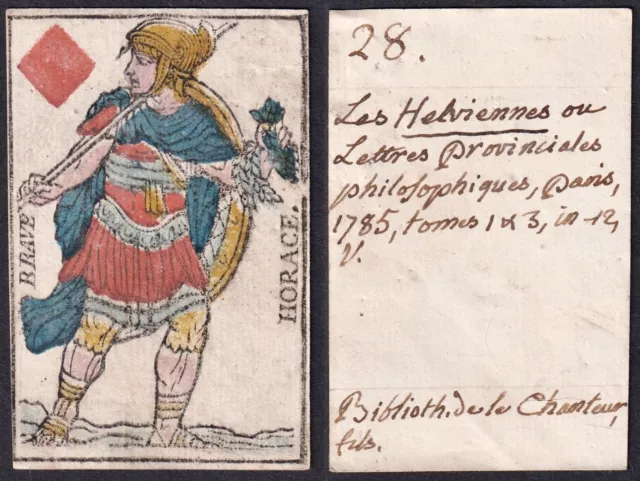 BRAVE
HORACE.
28.
Les Helviennes ou
Lettres provinciales
philosophiques, paris,
1785, tomes 1 & 3, in-12,
V.
Biblioth. de le Chanteur,
fils.